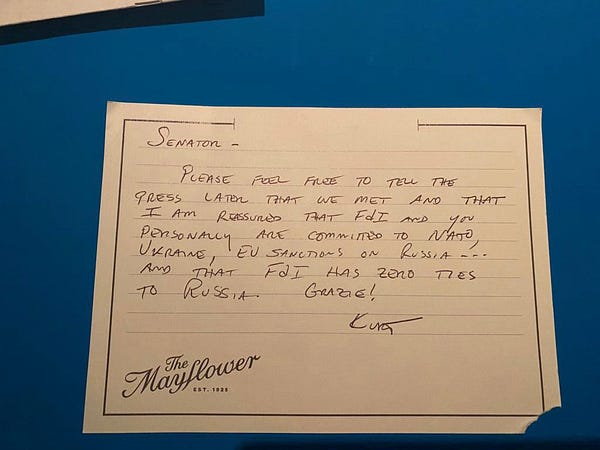 SENATOR -
PLEASE FEEL FREE TO TELL THE
PRESS LATER THAT WE MET AND THAT
I AM REASSURED THAT FdI AND YOU
PERSONALLY ARE COMMITTED TO NATO,
UKRAINE, EU SANCTIONS ON RUSSIA ---
AND THAT FdI HAS ZERO TIES
TO RUSSIA. GRAZIE!
KURT
The
Mayflower
EST. 1925